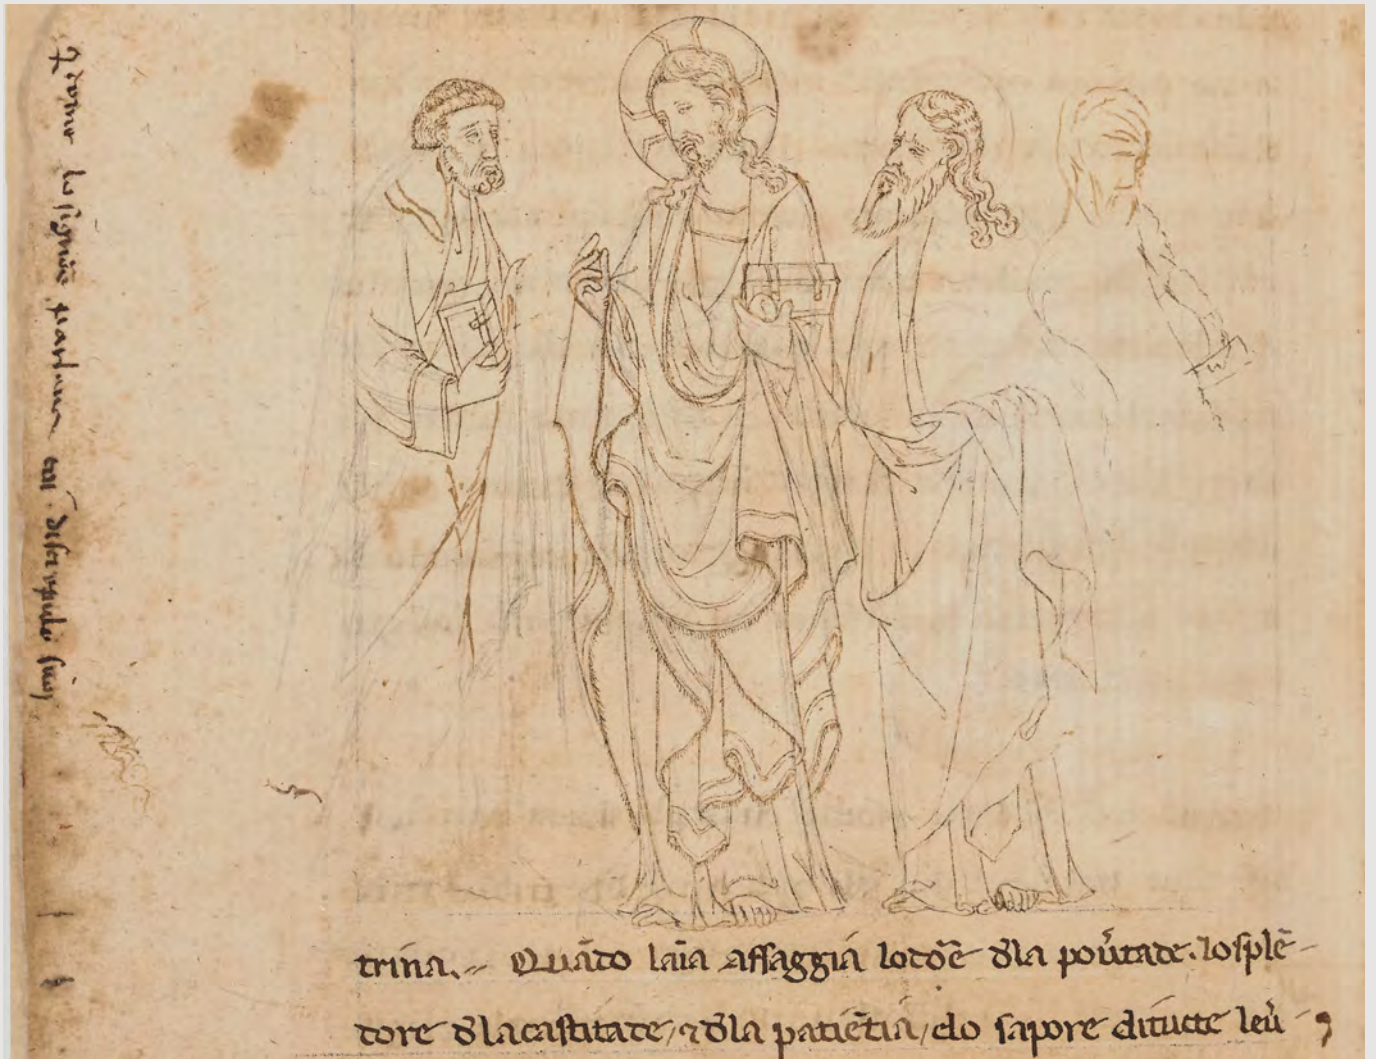 come lo signore parla cū discipuli suoi
trina. Quādo laīa assaggia lodōe d̄la pov̄tade. lo splē-
dore d̄la castitade, ⁊ d̄la patiētia, elo sapore di tucte lev̄-